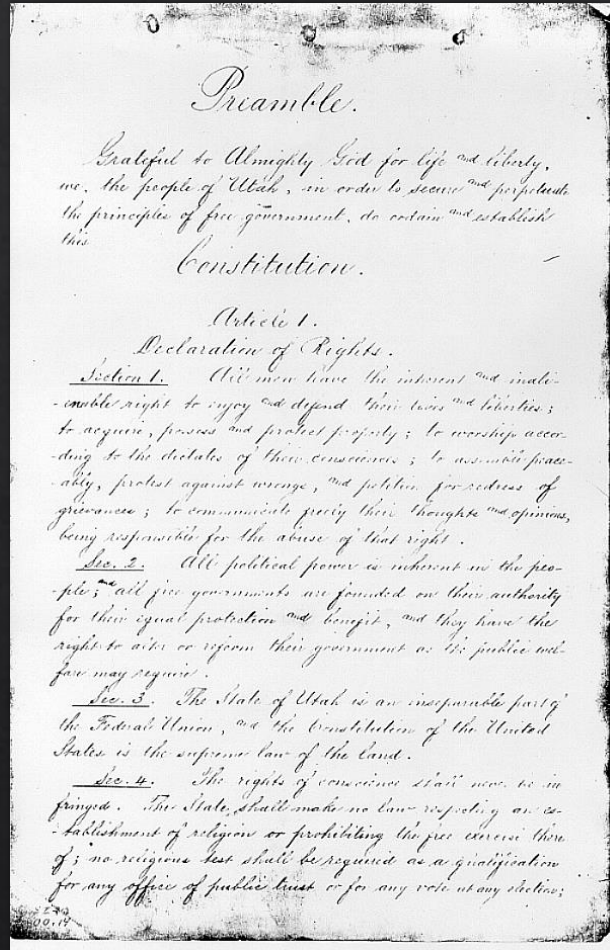 Preamble.
Grateful to Almighty God for life and liberty,
we, the people of Utah, in order to secure and perpetuate
the principles of free government, do ordain and establish
this
Constitution.
Article 1.
Declaration of Rights.
Section 1. All men have the inherent and inali-
-enable right to enjoy and defend their lives and liberties;
to acquire, possess and protect property; to worship accor-
-ding to the dictates of their consciences; to assemble peace-
-ably, protest against wrongs, and petition for redress of
grievances; to communicate freely their thoughts and opinions,
being responsible for the abuse of that right.
Sec. 2. All political power is inherent in the peo-
-ple; and all free governments are founded on their authority
for their equal protection and benefit, and they have the
right to alter or reform their government as the public wel-
fare may require.
Sec. 3. The State of Utah is an inseparable part of
the Federal Union, and the Constitution of the United
States is the supreme law of the land.
Sec. 4. The rights of conscience shall never be in
fringed. The State shall make no law respecting an es-
-tablishment of religion or prohibiting the free exercise there
of; no religious test shall be required as a qualification
for any office of public trust or for any vote at any election;